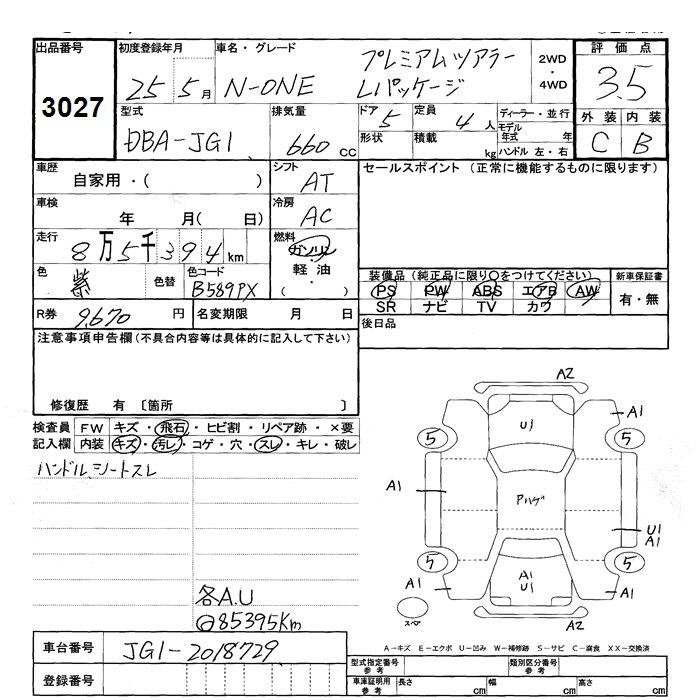 出品番号 初度登録年月 車名・グレード 2WD ・ 4WD 評価点
3027 25 5月 N-ONE プレミアムツアラー Lパッケージ 3.5
型式 排気量 ドア 定員 ディーラー・並行 外装 内装
DBA-JG1 660 CC 5 4人 モデル年式 年 C B
形状 積載 kg ハンドル 左・右
車歴 シフト セールスポイント (正常に機能するものに限ります)
自家用・( ) AT
車検 冷房
年 月( 日) AC
走行 燃料
8万5千394km ガソリン
色 色替 色コード 軽油 装備品 (純正品に限り○をつけてください) 新車保証書
紫 B589PX ・ ( ) PS PW ABS エアB AW 有・無
SR ナビ TV カワ
R券 9,670円 名変期限 月 日 後日品
注意事項申告欄 (不具合内容等は具体的に記入して下さい)
修復歴 有 〔箇所 〕
検査員 FW キズ・飛石・ヒビ割・リペア跡・×要
記入欄 内装 キズ・汚レ・コゲ・穴・スレ・キレ・破レ
ハンドル、シートスレ
A2
A1
U1
5 5
A1 Pハゲ
U1
A1
5 5
A1 A1 U1 A1
スペア A2
各A.U
@85395Km
A−キズ E−エクボ U−凹み W−補修跡 S−サビ C−腐食 XX−交換済
車台番号 JG1-2018729
型式指定番号 参考 類別区分番号 参考
登録番号 車庫証明用 参考 長さ cm 幅 cm 高さ cm